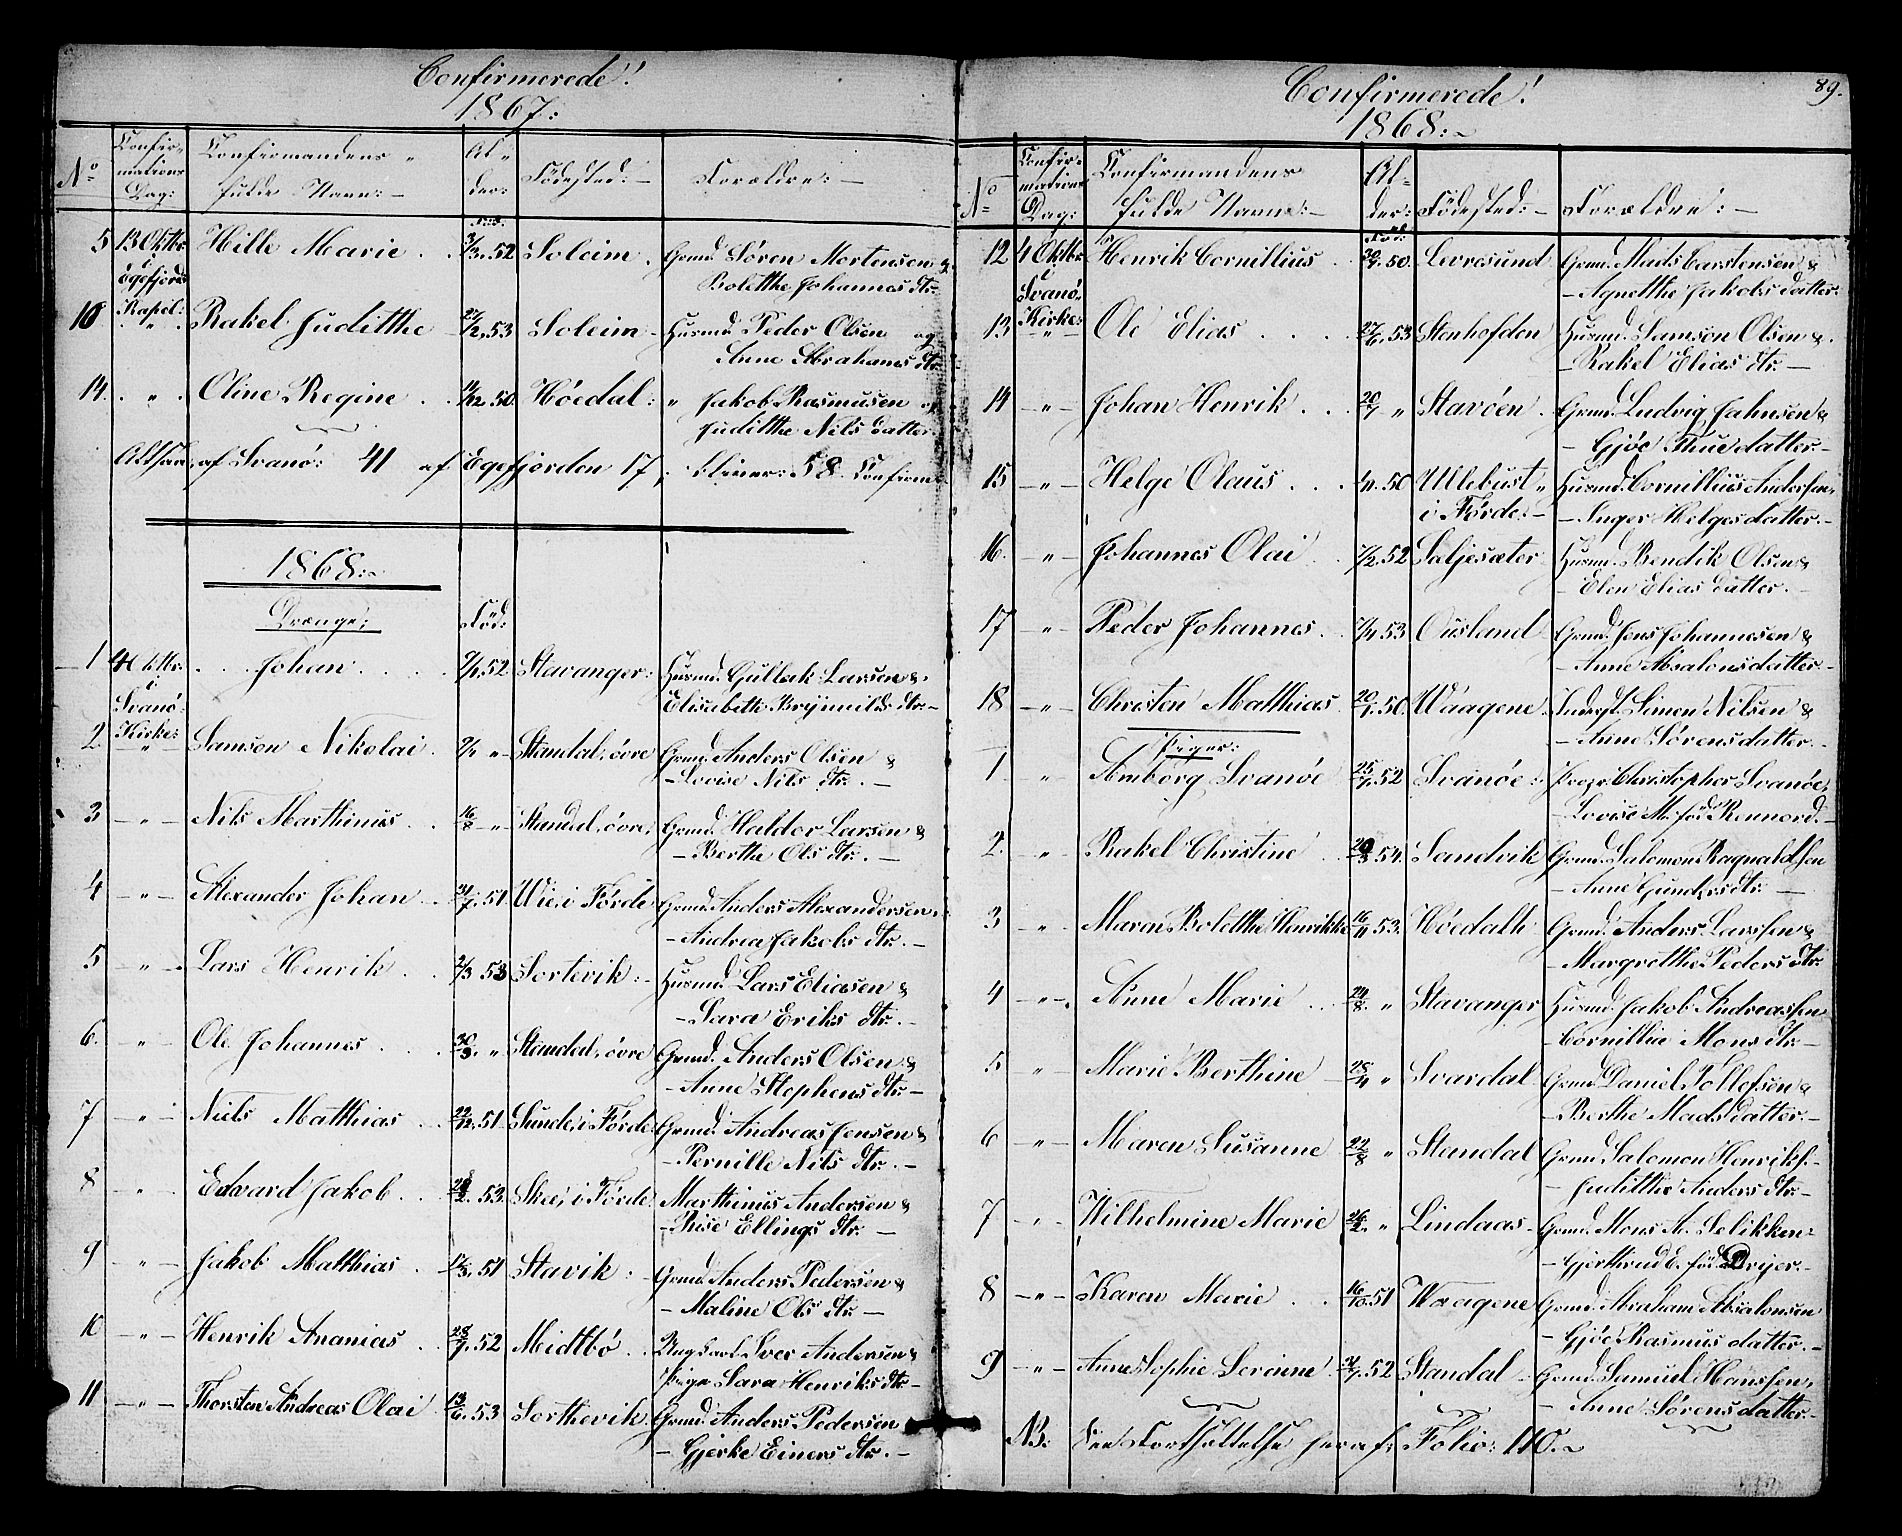 Confirmerede!
1867:
No
Confir-
mations
Dag:
Confirmandens
fulde Navn:
Al-
der:
Fødested:
Forældre:
5 13 Oktbr. Hille Marie . 3/3.52 Soleim . Grmd. Søren Mortensen &
i Egefjords Bolette Johannes dtr.
Kapel:
10 " Rakel Judithe 27/2.53 Soleim - Husmd. Peder Olsen og
Anne Abrahams dtr.
14. " Oline Regine . . 11/12.50 Høedal: " Jakob Rasmusen og
Judithe Nils datter.
Altsaa, af Svanø: 41 af Egefjorden 17, bliver: 58 Confirm
1868:
Drenge;
Fød:
1 4 Oktbr. . . Johan . . . . 52 Stavanger: Husmd. Gullak Larsen &
i Svanø Elisabeth Brynilds dtr.-
Kirke:
2. " Samson Nikolai . " Standal, øvre Grmd. Anders Olsen &
- Lovise Nils dtr. -
3 - " - Nils Marthinus . . 16/8 - " - Standal, øvre, Grmd. Haldor Larsen &
- Berthe Ols dtr. -
4 - " - Alexander Johan . 31/7.51 Wie, i Førde Grmd. Anders Alexandersen
- Andrea Jakobs dtr. -
5 - " - Lars Henrik . . 2/3 53 Sortevik: - Husmd. Lars Eliasen &
- Sara Eriks dtr. -
6. " Ole Johannes . . . 30/9. " Standal, øvre Grmd. Anders Olsen &
- Anne Stephens dtr. -
7 - " - Niels Matthias . . 22/12.51 Sunde, i Førde Grmd. Andreas Jensen &
- Pernille Nils dtr. -
8 " - Edvard Jakob . . 53. Skei, i Førde Marthinus Andersen &
Ellings dtr. -
9 " - Jakob Matthias . 51 Stavik: - Grmd. Anders Pedersen &
- Maline Ols dtr. -
10 - " - Henrik Ananias . . 28/7.52 Midtbø . . Ungkarl Iver Andersen &
Pige Sara Henriks dtr. -
11 - " - Thorsten Andreas Olai 13/6.53 Sorthevik. Grmd. Anders Pedersen
- Gjerke Einers dtr. -
Confirmerede!
89.
1868:
No
Confir-
mations
Dag:
Confirmandens
fulde Navn: -
Al-
der:
Fødested: -
Forældre: -
Fød:
12 4 Oktbr. Henrik Cornillius . 50. Levresund Grmd. Mads Carstensen &
i Svanø - Agnethe Jakobs datter.
Kirke:
13 " Ole Elias . . . . 27/6.53 Stenhofden Husmd. Samson Olsen &
- Rakel Elias dtr. -
14 - " - Johan Henrik . . . 20/7 " Stavøen . Grmd. Ludvig Jahnsen &
- Gjøe Thue datter. -
15 - " - Helge Olaus . . . 50 Ulebust " Husmd. Cornillius Andersen
i Førde: - - Inger Helges datter. -
16. " - Johannes Olai . . 7/2.52 Saljesæter Husmd. Bendik Olsen &
- Elen Elias datter. -
17 - " - Peder Johannes . 7/4 53 Ousland Grmd. Jens Johannesen &
- Anne Absalons datter -
18 - " - Christen Matthias . 50. Waagene . Simon Nilsen &
- Anne Sørens datter. -
Piger:
1 " Amborg Svanøe 25/7.52 Svanøe: Christopher Svanøe,
- Lovise M. fød Rennord. -
2. - " - Rakel Christine . . 54. Sandvik Grmd. Salomon Ragnaldsen
- Anne Gunders dtr. -
3 - " - Maren Bolethe Henrikke 16/11 53. Høedalh Grmd. Anders Larssen &
- Margrethe Peders dtr.
4 - " - Anne Marie . . 24/8. " Stavanger Husmd. Jakob Andreassen
- Cornillia Mons dtr. -
5 - " - Marie Berthine - 28/4 " Svardal Grmd. Daniel Tollefsen &
- Berthe Mads datter. -
6 - " - Maren Susanne 22/8 " Standal Grmd. Salomon Henriks.
- Judithe Anders dtr. -
7 - " - Wilhelmine Marie 26/2. " Lindaas - Grmd. Mons A. Selikken
- Gjerthrud E. fød Drejer. -
8 - " - Karen Marie . . 16/10.51 Waagene Grmd. Abraham Absalonsen
- Gjøe Rasmus datter. -
9 - " - Anne Sophie Serinne 31/7.52 Standal - Grmd. Samuel Hanssen,
- Anne Sørens datter. -
NB: Fortsættelse heraf: Folio: 110.